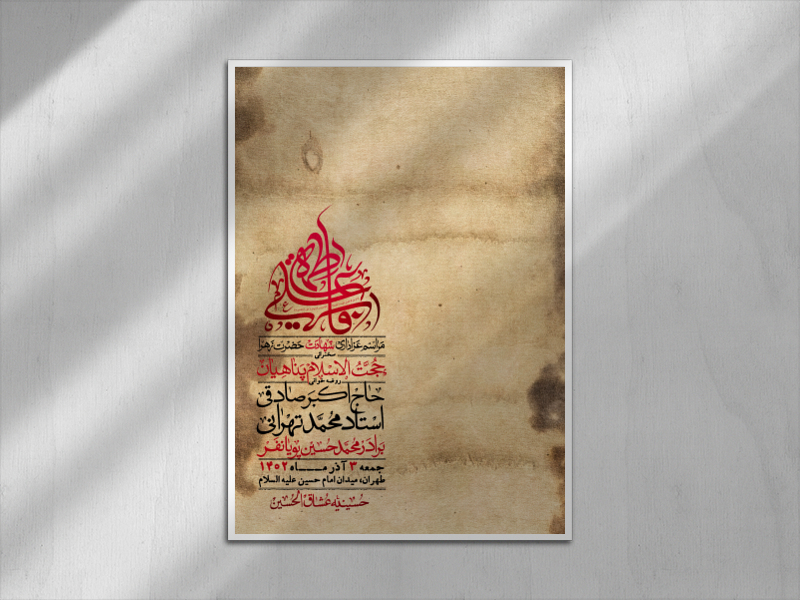 مراسم عزاداری شهادت حضرت زهرا
سخنرانی
حجت الاسلام پناهیان
روضه خوانی
حاج اکبر صادقی
استاد محمد تهرانی
برادر محمد حسین پویانفر
جمعه ۳ آذر مــاه ۱۴۰۲
طهران، میدان امام حسین علیه السلام
حسینیه عشاق الحسین